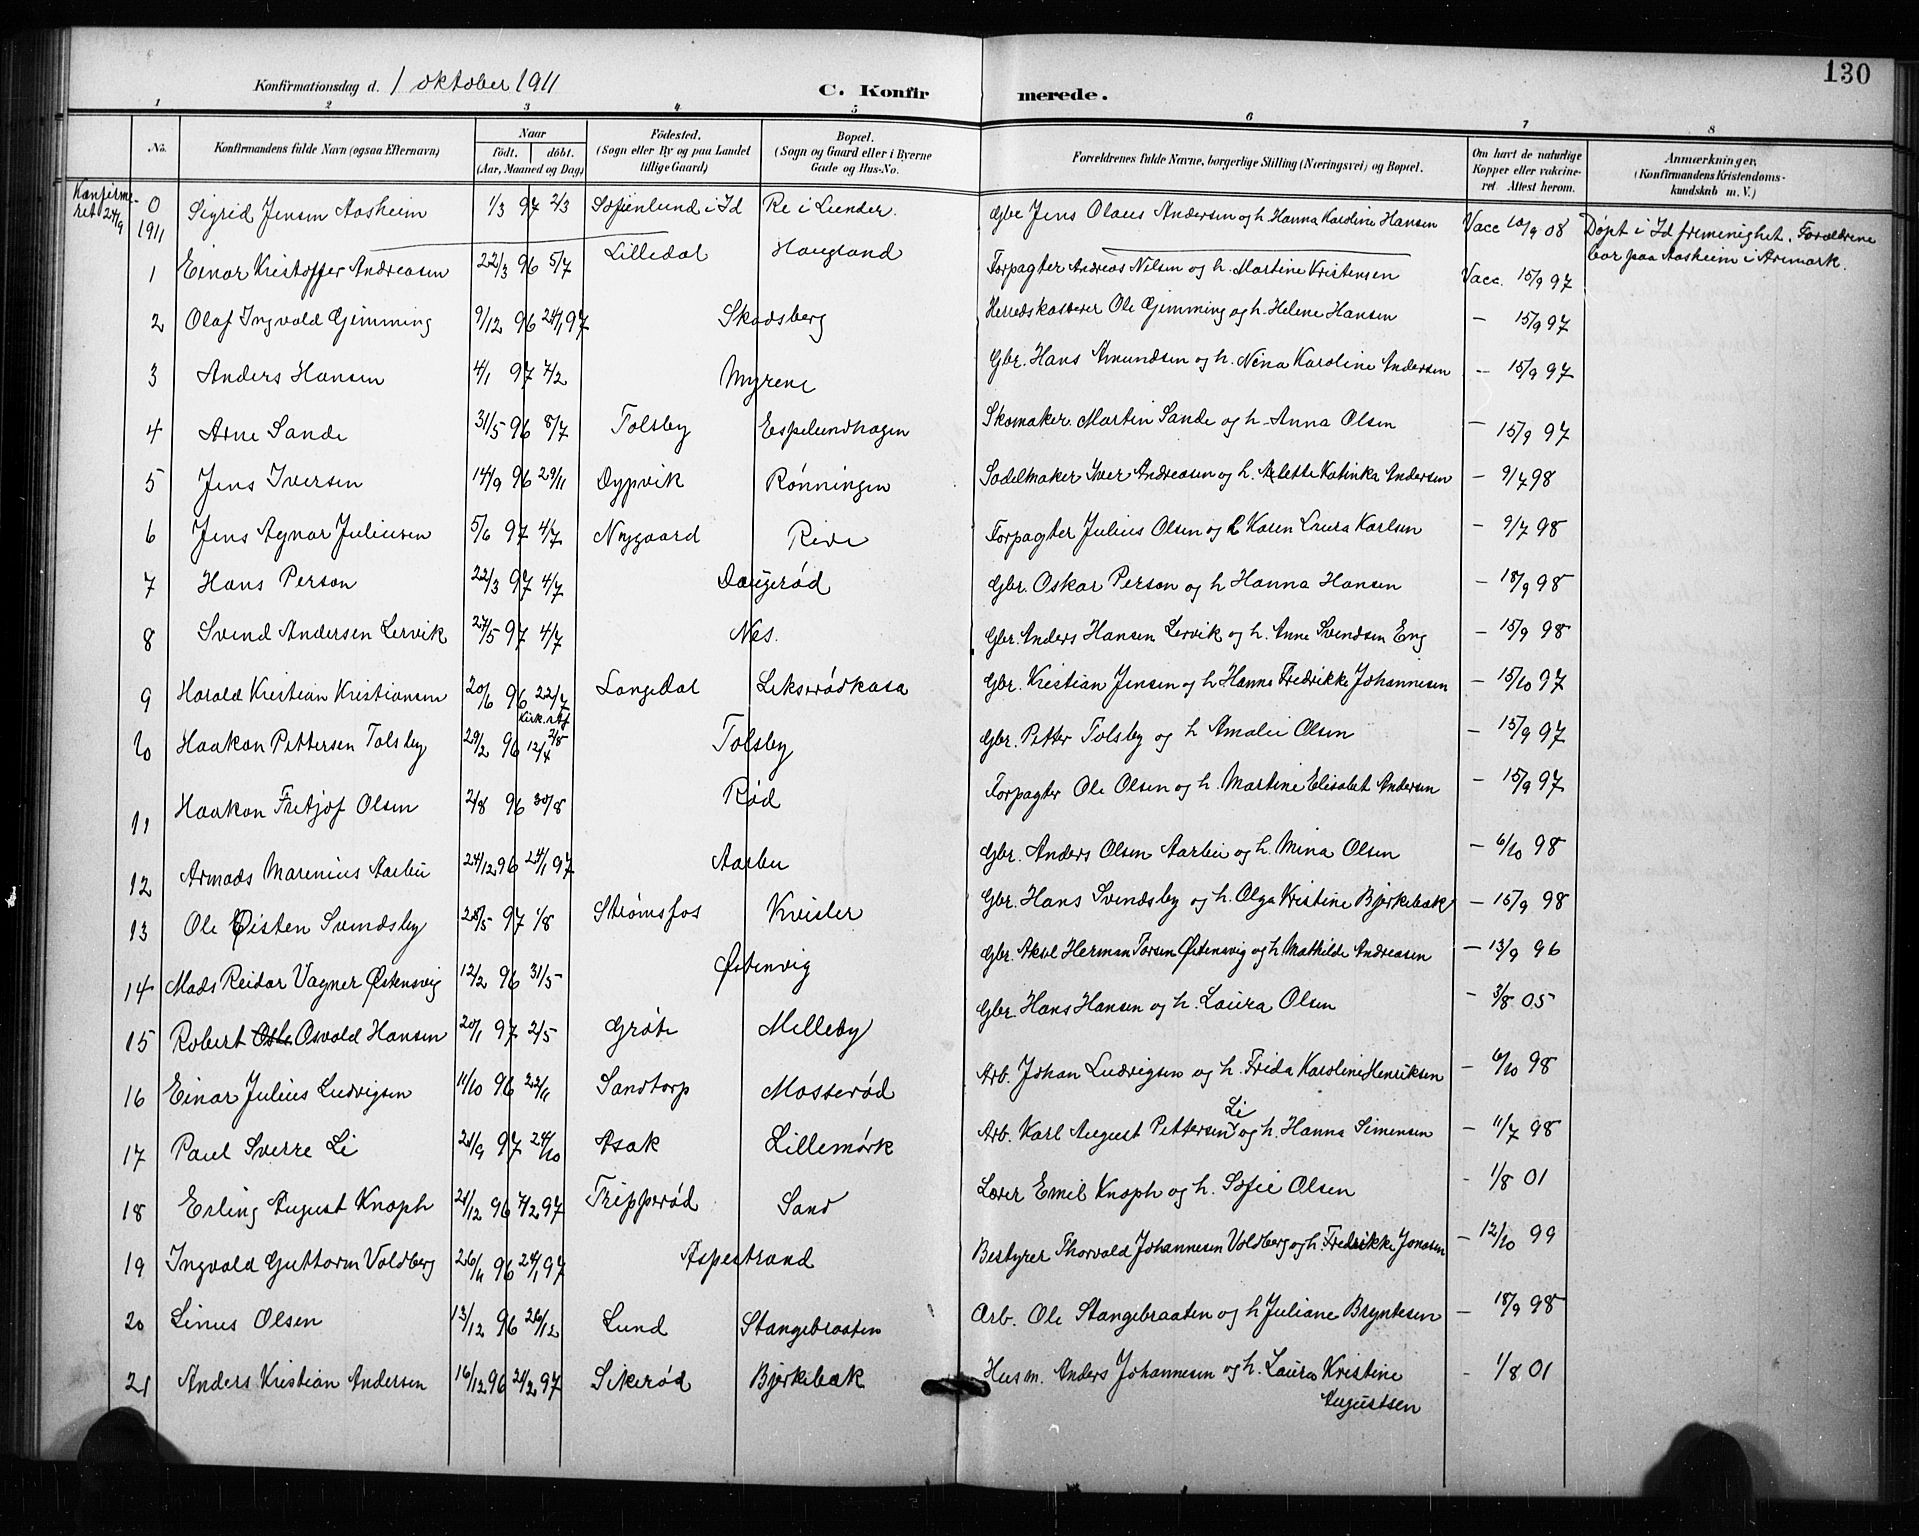 130
Konfirmationsdag d. 1 oktober 1911
C. Konfirmerede.
1 2 3 4 5 6 7 8
No.
Konfirmandens fulde Navn (ogsaa Efternavn)
Naar
födt. döbt.
(Aar, Maaned og Dag)
Födested.
(Sogn eller By og paa Landet
tillige Gaard)
Bopæl.
(Sogn og Gaard eller i Byerne
Gade og Hus-No.
Forældrenes fulde Navne, borgerlige Stilling (Næringsvei) og Bopæl.
Om havt de naturlige
Kopper eller vaccine-
ret. Attest herom.
Anmærkninger,
(Konfirmandens Kristendoms-
kundskab m. V.)
Konfirme-
ret 24/9
1911
0 Sigrid Jensen Aasheim 1/3 97 2/3 Sofienlund i Id Re i Lunder. Gbr Jens Olaus Andersen og h. Hanna Karoline Hansen Vacc 10/9 08 Døpt i Id frimenighet. Forældrene
bor paa Aasheim i Aremark.
1 Einar Kristoffer Andreasen 22/3 96 5/7 Lilledal Haugland Forpagter Andreas Nilsen og h. Martine Kristensen Vacc. 15/9 97
2 Olaf Ingvald Gimming 9/12 96 24/1 97 Skodsberg Herredskasserer Ole Gimming og h. Helene Hansen — 15/9 97
3 Anders Hansen 4/1 97 7/2 Myrene Gbr. Hans Amundsen og h. Nina Karoline Andersen — 15/9 97
4 Arne Sande 31/5 96 8/7 Tolsby Espelundhagen Skomaker Martin Sande og h. Anna Olsen — 15/9 97
5 Jens Iversen 14/9 96 29/11 Dypvik Rønningen Sadelmaker Iver Andreasen og h. Alette Katinka Andersen — 9/7 98
6 Jens Agnar Juliusen 5/6 97 4/7 Nygaard Reve Forpagter Julius Olsen og h Karen Laura Karlsen — 9/7 98
7 Hans Person 22/3 97 4/7 Daugerød Gbr. Oskar Person og h Hanna Hansen — 18/9 98
8 Svend Andersen Lervik 27/5 97 4/7 Nes. Gbr. Anders Hansen Lervik og h. Anne Svendsen Eng — 15/9 98
9 Harald Kristian Kristiansen 20/6 96 22/7 Langedal Lekserødkasa Gbr. Kristian Jensen og h Hanna Fredrikke Johannesen — 15/10 97
10 Haakon Pettersen Tolsby 29/2 96 12/4 2/8 Tolsby Gbr. Petter Tolsby og h Amalie Olsen — 15/9 97
11 Haakon Fritjof Olsen 2/8 96 30/8 Rød Forpagter Ole Olsen og h. Martine Elisabet Andersen — 15/9 97
12 Armods Marenius Aarbu 24/12 96 24/1 97 Aarbu Gbr. Anders Olsen Aarbu og h. Mina Olsen — 6/10 98
13 Ole Øisten Svendsby 28/5 97 1/8 Strømsfos Kvisler Gbr. Hans Svendsby og h. Olga Kristine Bjørkebæk — 15/9 98
14 Mads Reidar Vagner Østensvig 12/2 96 31/5 Østenvig Gbr. Aksel Herman Torsen Østensvig og h. Mathilde Andreasen — 13/9 96
15 Robert Osvald Hansen 20/1 97 2/5 Grøte Milleby Gbr. Hans Hansen og h. Laura Olsen — 3/8 05
16 Einar Julius Ludvigsen 11/10 96 22/11 Sandtorp Mosserød Arb. Johan Ludvigsen og h. Frida Karoline Henriksen — 6/10 98
17 Paul Sverre Li 21/9 97 24/10 Asak Lillemørk Arb. Karl August Pettersen Li og h. Hanna Simensen — 11/7 98
18 Erling August Knoph 21/12 96 7/2 97 Tripperød Sand Lærer Emil Knoph og h. Sofie Olsen - 1/8 01
19 Ingvald Guttorm Voldberg 26/11 96 24/1 97 Aspestrand Bestyrer Thorvald Johannesen Voldberg og h. Fredrikke Jonasen — 12/10 99
20 Linus Olsen 13/12 96 26/12 Lund Stangebraaten Arb. Ole Stangebraaten og h Juliane Bryntesen — 18/9 98
21 Anders Kristian Andersen 16/12 96 21/2 97 Sikerød Bjørkebæk Husm. Anders Johannesen og h. Laura Kristine
Augustsen - 1/8 01